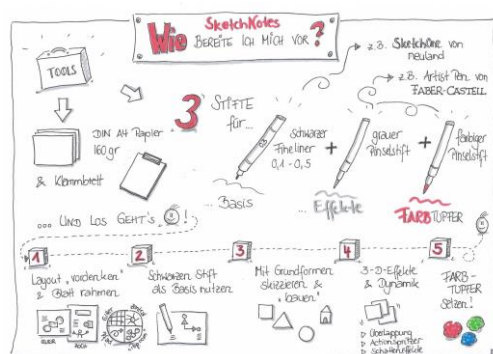 SketchNotes
Wie BEREITE ICH MICH VOR?
TOOLS
z.B. SketchOne von
neuland
z.B. Artist Pen von
FABER-CASTELL
3 STIFTE
für...
DIN A4 Papier
160gr
& Klemmbrett
schwarzer
Fineliner
0,1 - 0,5
+
grauer
Pinselstift
+
farbiger
Pinselstift
... Basis
... Effekte
FARBTUPFER
... UND LOS GEHT'S
1
Layout „vordenken“
& Blatt rahmen
QUER
HOCH
2
Schwarzen Stift
als Basis nutzen
3
Mit Grundformen
skizzieren &
„bauen“
4
3-D-Effekte
& Dynamik
Überlappung
Actionspritzer
Schatteneffekte
5
FARB-
TUPFER
setzen!